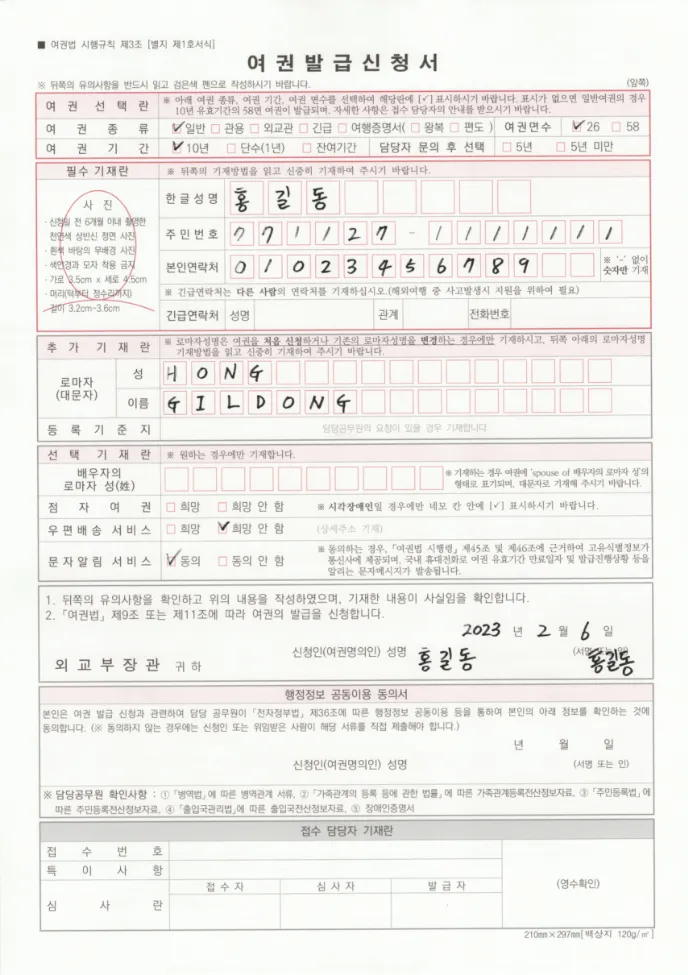 ■ 여권법 시행규칙 제3조 [별지 제1호서식]
여권발급신청서
※ 뒤쪽의 유의사항을 반드시 읽고 검은색 펜으로 작성하시기 바랍니다. (앞쪽)
여 권 선 택 란 ※ 아래 여권 종류, 여권 기간, 여권 면수를 선택하여 해당란에 [✓] 표시하시기 바랍니다. 표시가 없으면 일반여권의 경우
10년 유효기간의 58면 여권이 발급되며, 자세한 사항은 접수 담당자의 안내를 받으시기 바랍니다.
여 권 종 류 ☑ 일반 □ 관용 □ 외교관 □ 긴급 □ 여행증명서( □ 왕복 □ 편도 ) 여권면수 ☑ 26 □ 58
여 권 기 간 ☑ 10년 □ 단수(1년) □ 잔여기간 담당자 문의 후 선택 □ 5년 □ 5년 미만
필수 기재란 ※ 뒤쪽의 기재방법을 읽고 신중히 기재하여 주시기 바랍니다.
사 진
· 신청일 전 6개월 이내 촬영한
천연색 상반신 정면 사진
· 흰색 바탕의 무배경 사진
· 색안경과 모자 착용 금지
· 가로 3.5cm x 세로 4.5cm
· 머리(턱부터 정수리까지)
길이 3.2cm~3.6cm
한글성명 홍 길 동
주민번호 7 7 1 1 2 7 - 1 1 1 1 1 1 1
본인연락처 0 1 0 2 3 4 5 6 7 8 9 ※ '-' 없이
숫자만 기재
※ 긴급연락처는 다른 사람의 연락처를 기재하십시오.(해외여행 중 사고발생시 지원을 위하여 필요)
긴급연락처 성명 관계 전화번호
추 가 기 재 란 ※ 로마자성명은 여권을 처음 신청하거나 기존의 로마자성명을 변경하는 경우에만 기재하시고, 뒤쪽 아래의 로마자성명
기재방법을 읽고 신중히 기재하여 주시기 바랍니다.
로마자
(대문자)
성 H O N G
이름 G I L D O N G
등 록 기 준 지 담당공무원의 요청이 있을 경우 기재합니다
선 택 기 재 란 ※ 원하는 경우에만 기재합니다.
배우자의
로마자 성(姓)
※ 기재하는 경우 여권에 'spouse of 배우자의 로마자 성'의
형태로 표기되며, 대문자로 기재해 주시기 바랍니다.
점 자 여 권 □ 희망 □ 희망 안 함 ※ 시각장애인일 경우에만 네모 칸 안에 [✓] 표시하시기 바랍니다.
우편배송 서비스 □ 희망 ☑ 희망 안 함 (상세주소 기재)
문자알림 서비스 ☑ 동의 □ 동의 안 함 ※ 동의하는 경우, 「여권법 시행령」 제45조 및 제46조에 근거하여 고유식별정보가
통신사에 제공되며, 국내 휴대전화로 여권 유효기간 만료일자 및 발급진행상황 등을
알리는 문자메시지가 발송됩니다.
1. 뒤쪽의 유의사항을 확인하고 위의 내용을 작성하였으며, 기재한 내용이 사실임을 확인합니다.
2. 「여권법」 제9조 또는 제11조에 따라 여권의 발급을 신청합니다.
2023 년 2 월 6 일
신청인(여권명의인) 성명 홍길동 (서명 또는 인) 홍길동
외교부장관 귀하
행정정보 공동이용 동의서
본인은 여권 발급 신청과 관련하여 담당 공무원이 「전자정부법」 제36조에 따른 행정정보 공동이용 등을 통하여 본인의 아래 정보를 확인하는 것에
동의합니다. (※ 동의하지 않는 경우에는 신청인 또는 위임받은 사람이 해당 서류를 직접 제출해야 합니다.)
년 월 일
신청인(여권명의인) 성명 (서명 또는 인)
※ 담당공무원 확인사항 : ① 「병역법」에 따른 병역관계 서류, ② 「가족관계의 등록 등에 관한 법률」에 따른 가족관계등록전산정보자료, ③ 「주민등록법」에
따른 주민등록전산정보자료, ④ 「출입국관리법」에 따른 출입국전산정보자료, ⑤ 장애인증명서
접수 담당자 기재란
접 수 번 호
특 이 사 항
심 사 란 접 수 자 심 사 자 발 급 자 (영수확인)
210mm×297mm[백상지 120g/㎡]